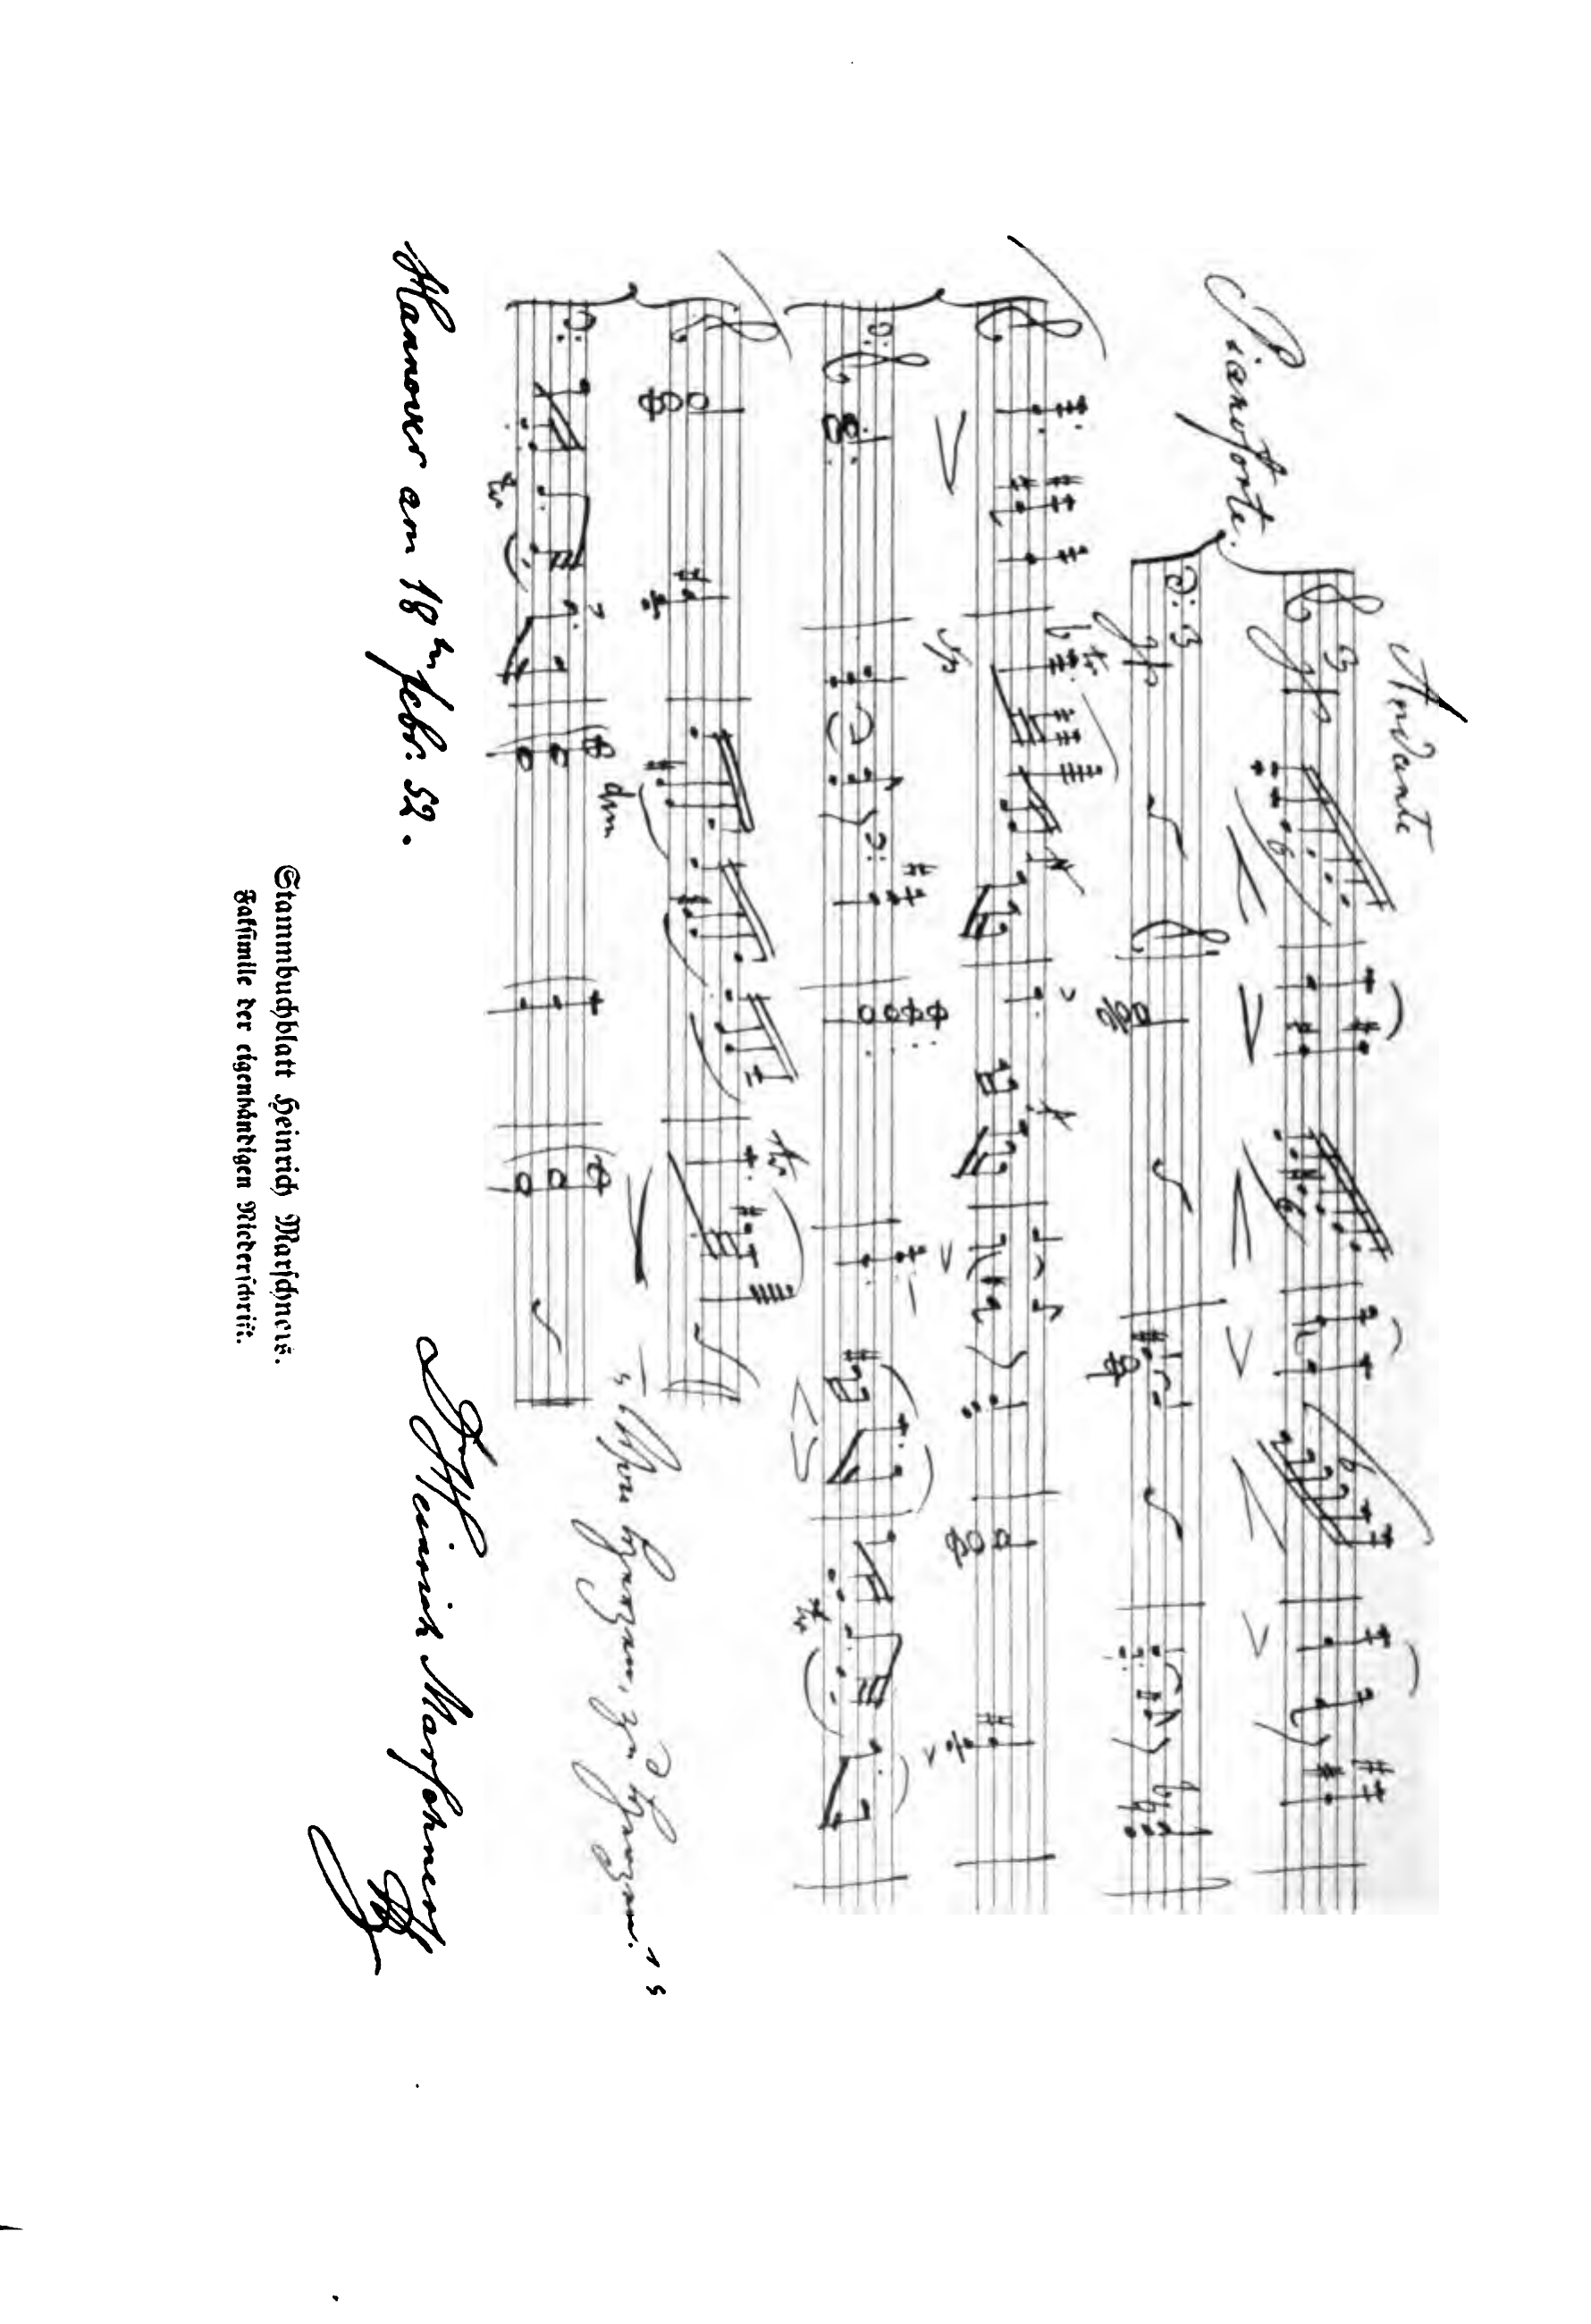 Andante
Pianoforte.
„Von Herzen, zu Herzen."
Hannover am 18ten febr: 52.
Dr H Heinrich Marschner
Stammbuchblatt Heinrich Marschners.
Faksimile der eigenhändigen Niederschrift.